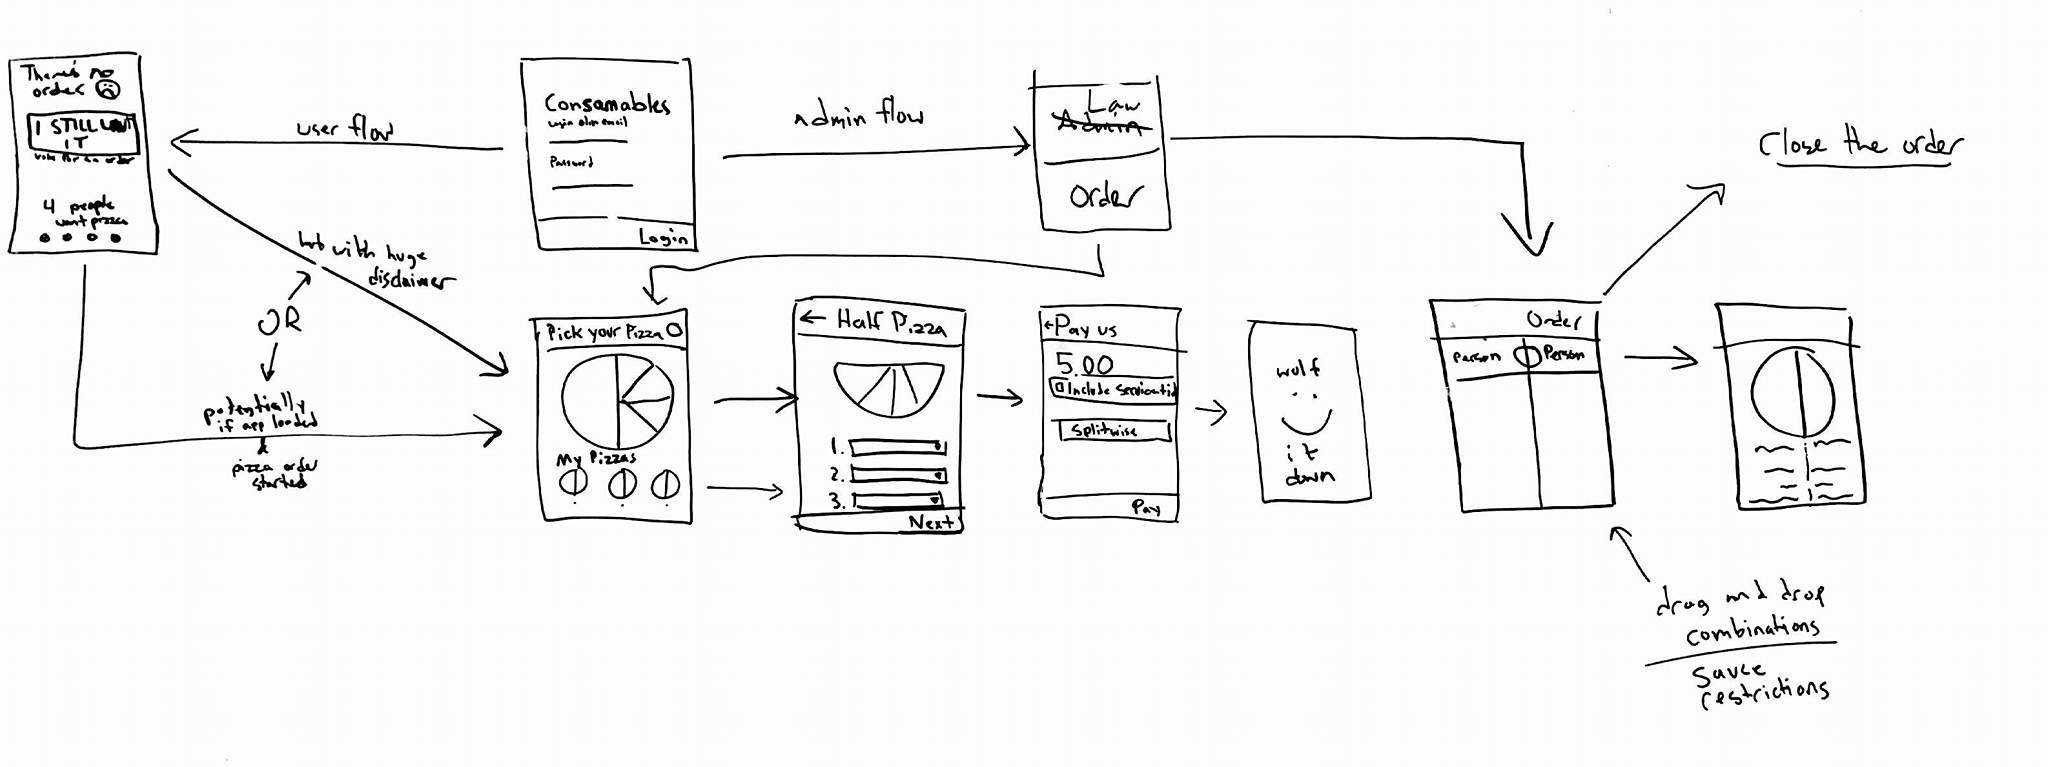 There's no
order
I STILL WANT
IT
vote for an order
4 people
want pizza
user flow
Consamables
Login
Password
Login
admin flow
Law
Admin
Order
Close the order
with huge
disclaimer
OR
potentially
if app loaded
&
pizza order
started
Pick your Pizza
My Pizzas
Half Pizza
1.
2.
3.
Next
Pay us
5.00
Include
Splitwise
Pay
wolf
it
down
Order
Person
Person
drag and drop
combinations
sauce
restrictions